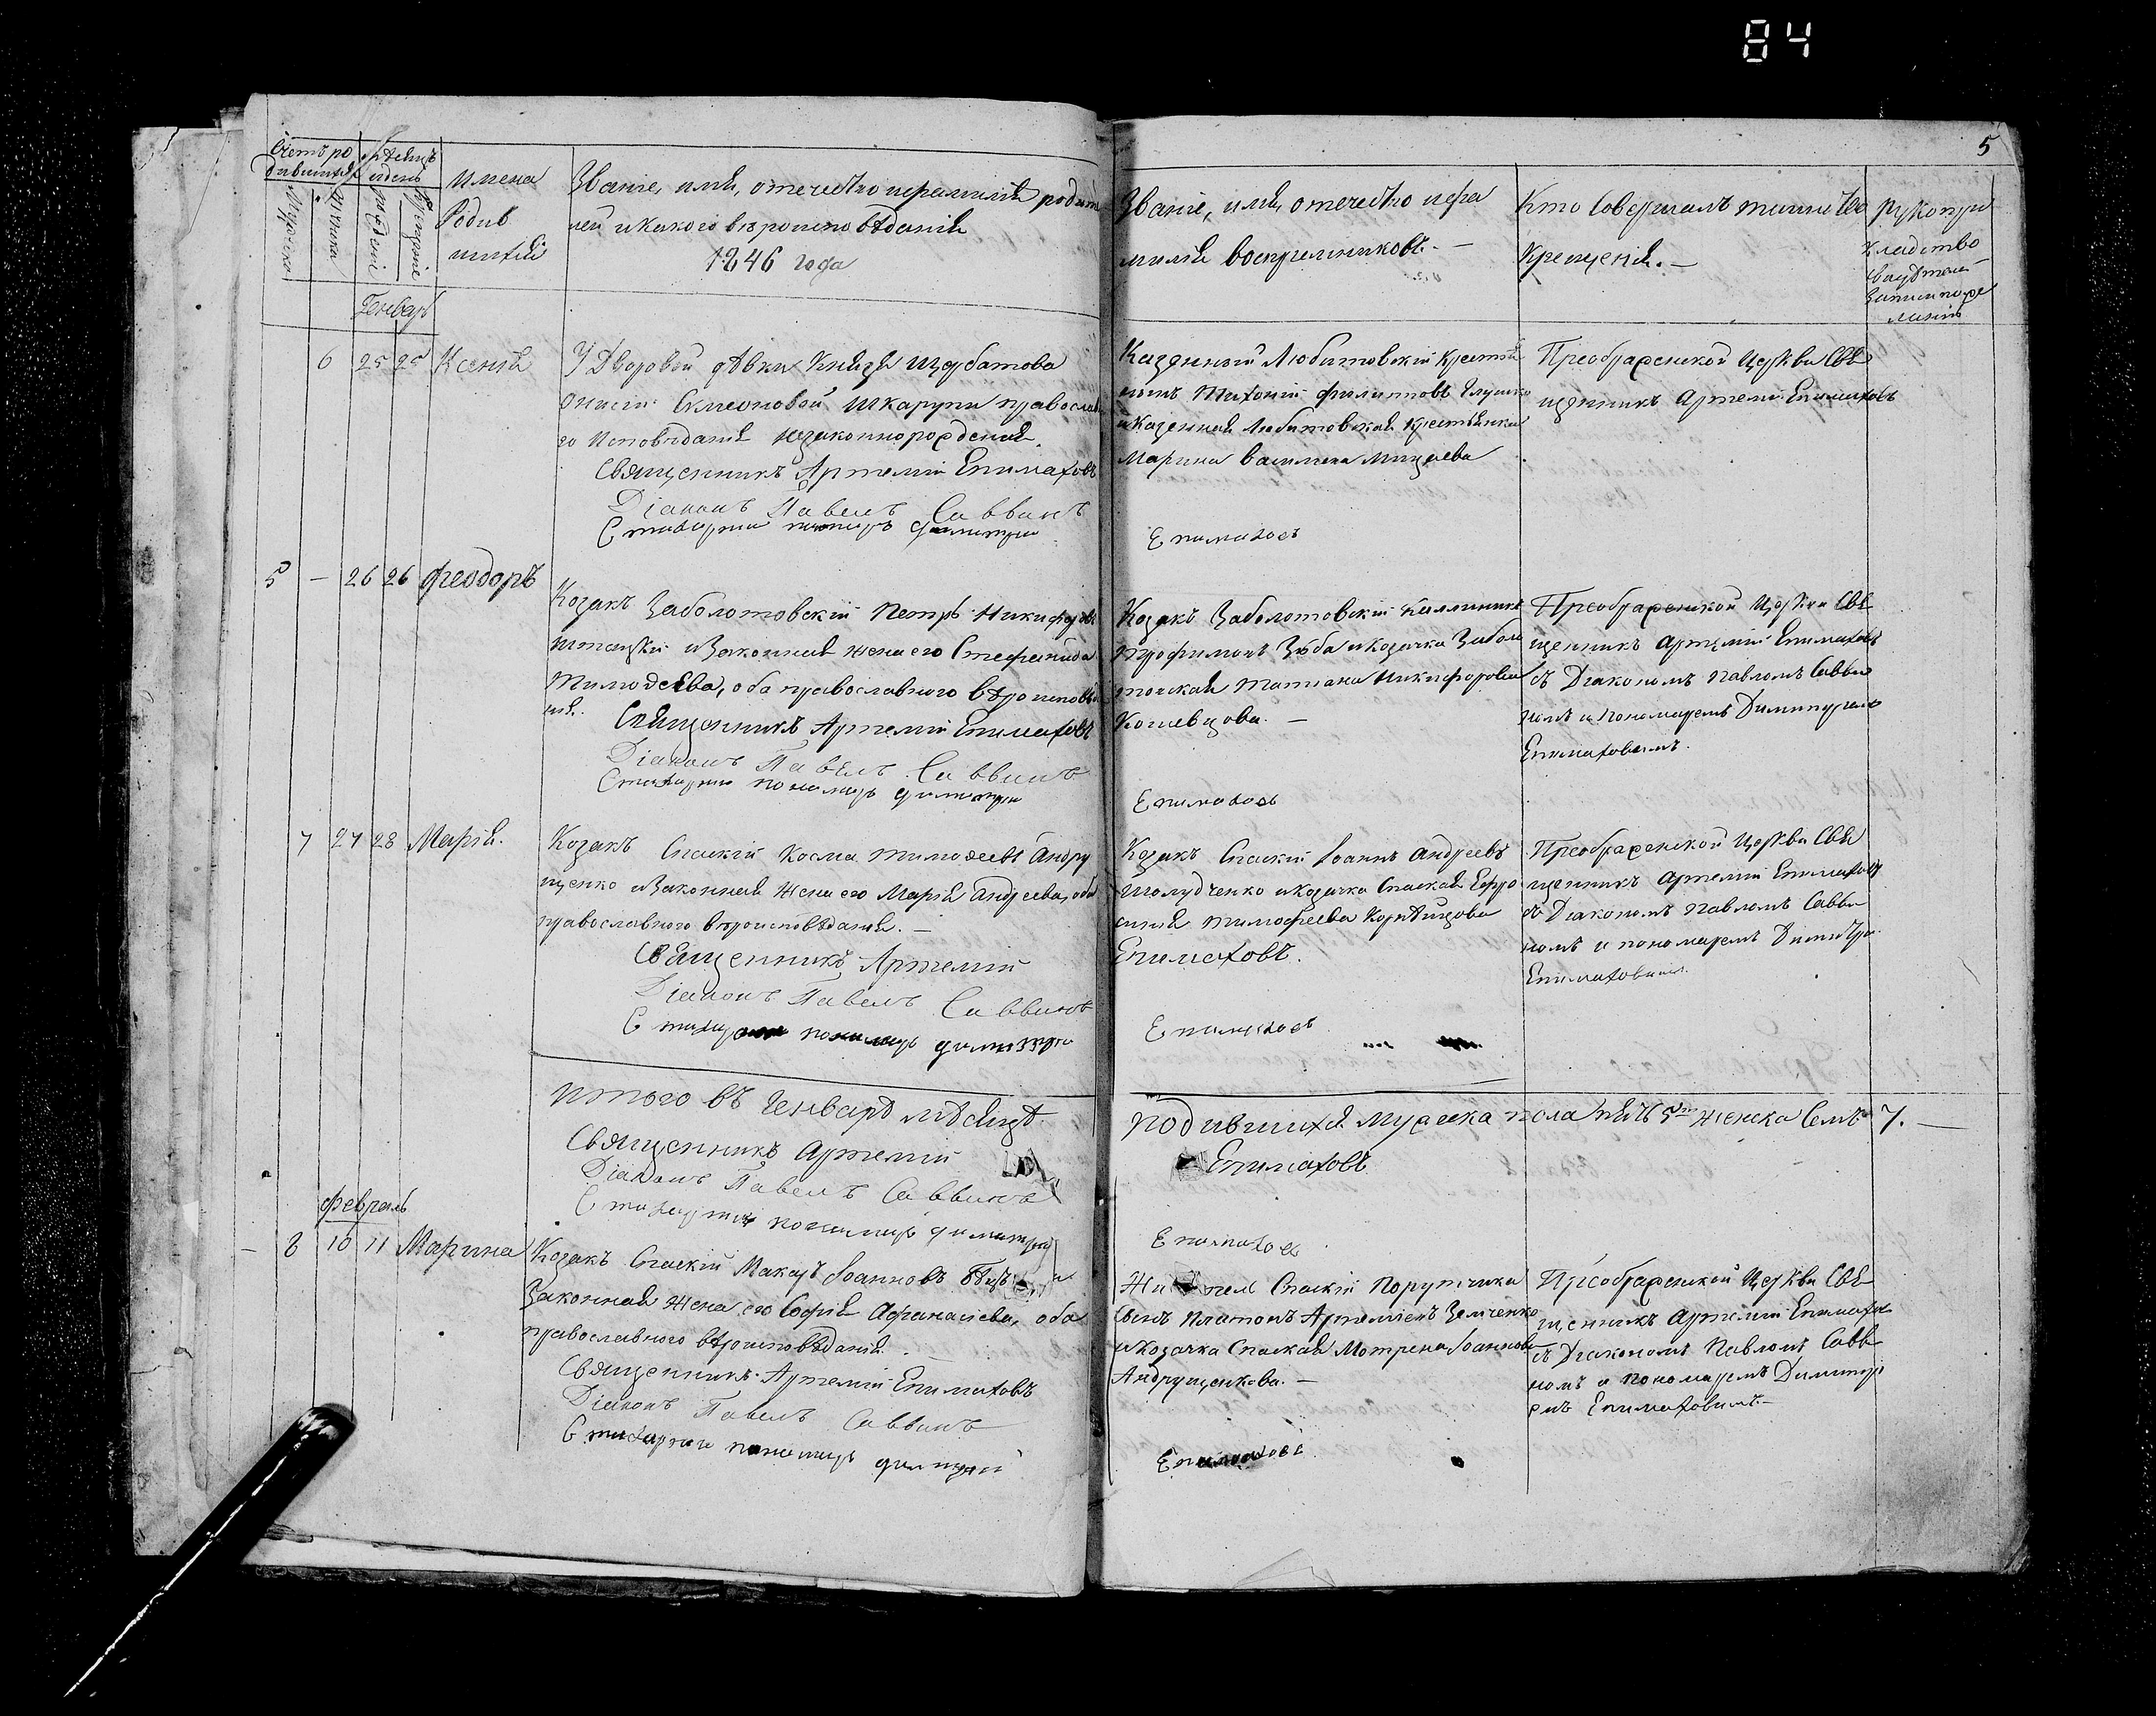 84
5
Счетъ ро
дившихся
Мужеска
Женска
Имена
Родив
шихся
Званіе, имя, отечество и фамилія родите
лей и какого вѣроисповѣданія
1846 года
Званіе, имя, отечество и фа
милія воспріемниковъ. —
Кто совершалъ таинство
Крещенія. —
Рукопри
кладство
Генварь
6 25 25 Ксенія
У Дворовой дѣвки Князя Щербатова
Симеоновой Шкарупи православна
го исповѣданія незаконнорожденая.
Священникъ Артемій Епимаховъ
Діаконъ Павелъ Саввинъ
Стихарный пономарь Димитрій
Казенный Любитовскій крестья
нинъ Тихоній Филиповъ Глушко
и казенная Любитовская крестьянка
Марина Васильева
Епимаховъ
Преображенской Церкви Свя
щенникъ Артемій Епимаховъ
5 — 26 26 Феодоръ
Козакъ Заболотовскій Петръ Никифоровъ
и Законная жена его Стефанида
Тимофеева, оба православного вѣроисповѣда
нія.
Священникъ Артемій Епимаховъ
Діаконъ Павелъ Саввинъ
Стихарный пономарь Димитрій
Козакъ Заболотовскій Каллиникъ
Трофимовъ Зуба и козачка Заболо
товская Татіана Никифорова
Епимаховъ
Преображенской Церкви Свя
щенникъ Артемій Епимаховъ
съ Діакономъ Павломъ Савви
номъ и пономаремъ Димитріемъ
Епимаховымъ.
7 27 28 Марія.
Козакъ Спаскій Косма Тимофеевъ Андру
щенко и Законная жена его Марія Андреева, оба
православного вѣроисповѣданія. —
Священникъ Артемій
Діаконъ Павелъ Саввинъ
Стихарный пономарь Димитрій
Козакъ Спаскій Іоаннъ Андреевъ
Шолудченко и козачка Спаская Евфро
синія Тимофеева
Епимаховъ.
Епимаховъ
Преображенской Церкви Свя
щенникъ Артемій Епимаховъ
съ Діакономъ Павломъ Савви
номъ и пономаремъ Димитрі
Епимаховымъ.
Итого въ Генварѣ мѣсяцѣ
родившихся мужеска пола пять 5 женска семь 7. —
Священникъ Артемій
Епимаховъ
Діаконъ Павелъ Саввинъ
Стихарный пономарь Димитрій
Епимаховъ
Февраль
— 8 10 11 Марина
Козакъ Спаскій Макаръ Іоанновъ
Законная жена его Софія Афанасіева, оба
православного вѣроисповѣданія. —
Священникъ Артемій Епимаховъ
Діаконъ Павелъ Саввинъ
Стихарный пономарь Димитрій
Спаскій Поручика
сынъ Платонъ Артеміевъ Земченко
и козачка Спаская Мотрена Іоаннова
Андрущенкова. —
Епимаховъ
Преображенской Церкви Свя
щенникъ Артемій Епимахов
съ Діакономъ Павломъ Савви
номъ и пономаремъ Димитрі
емъ Епимаховымъ. —